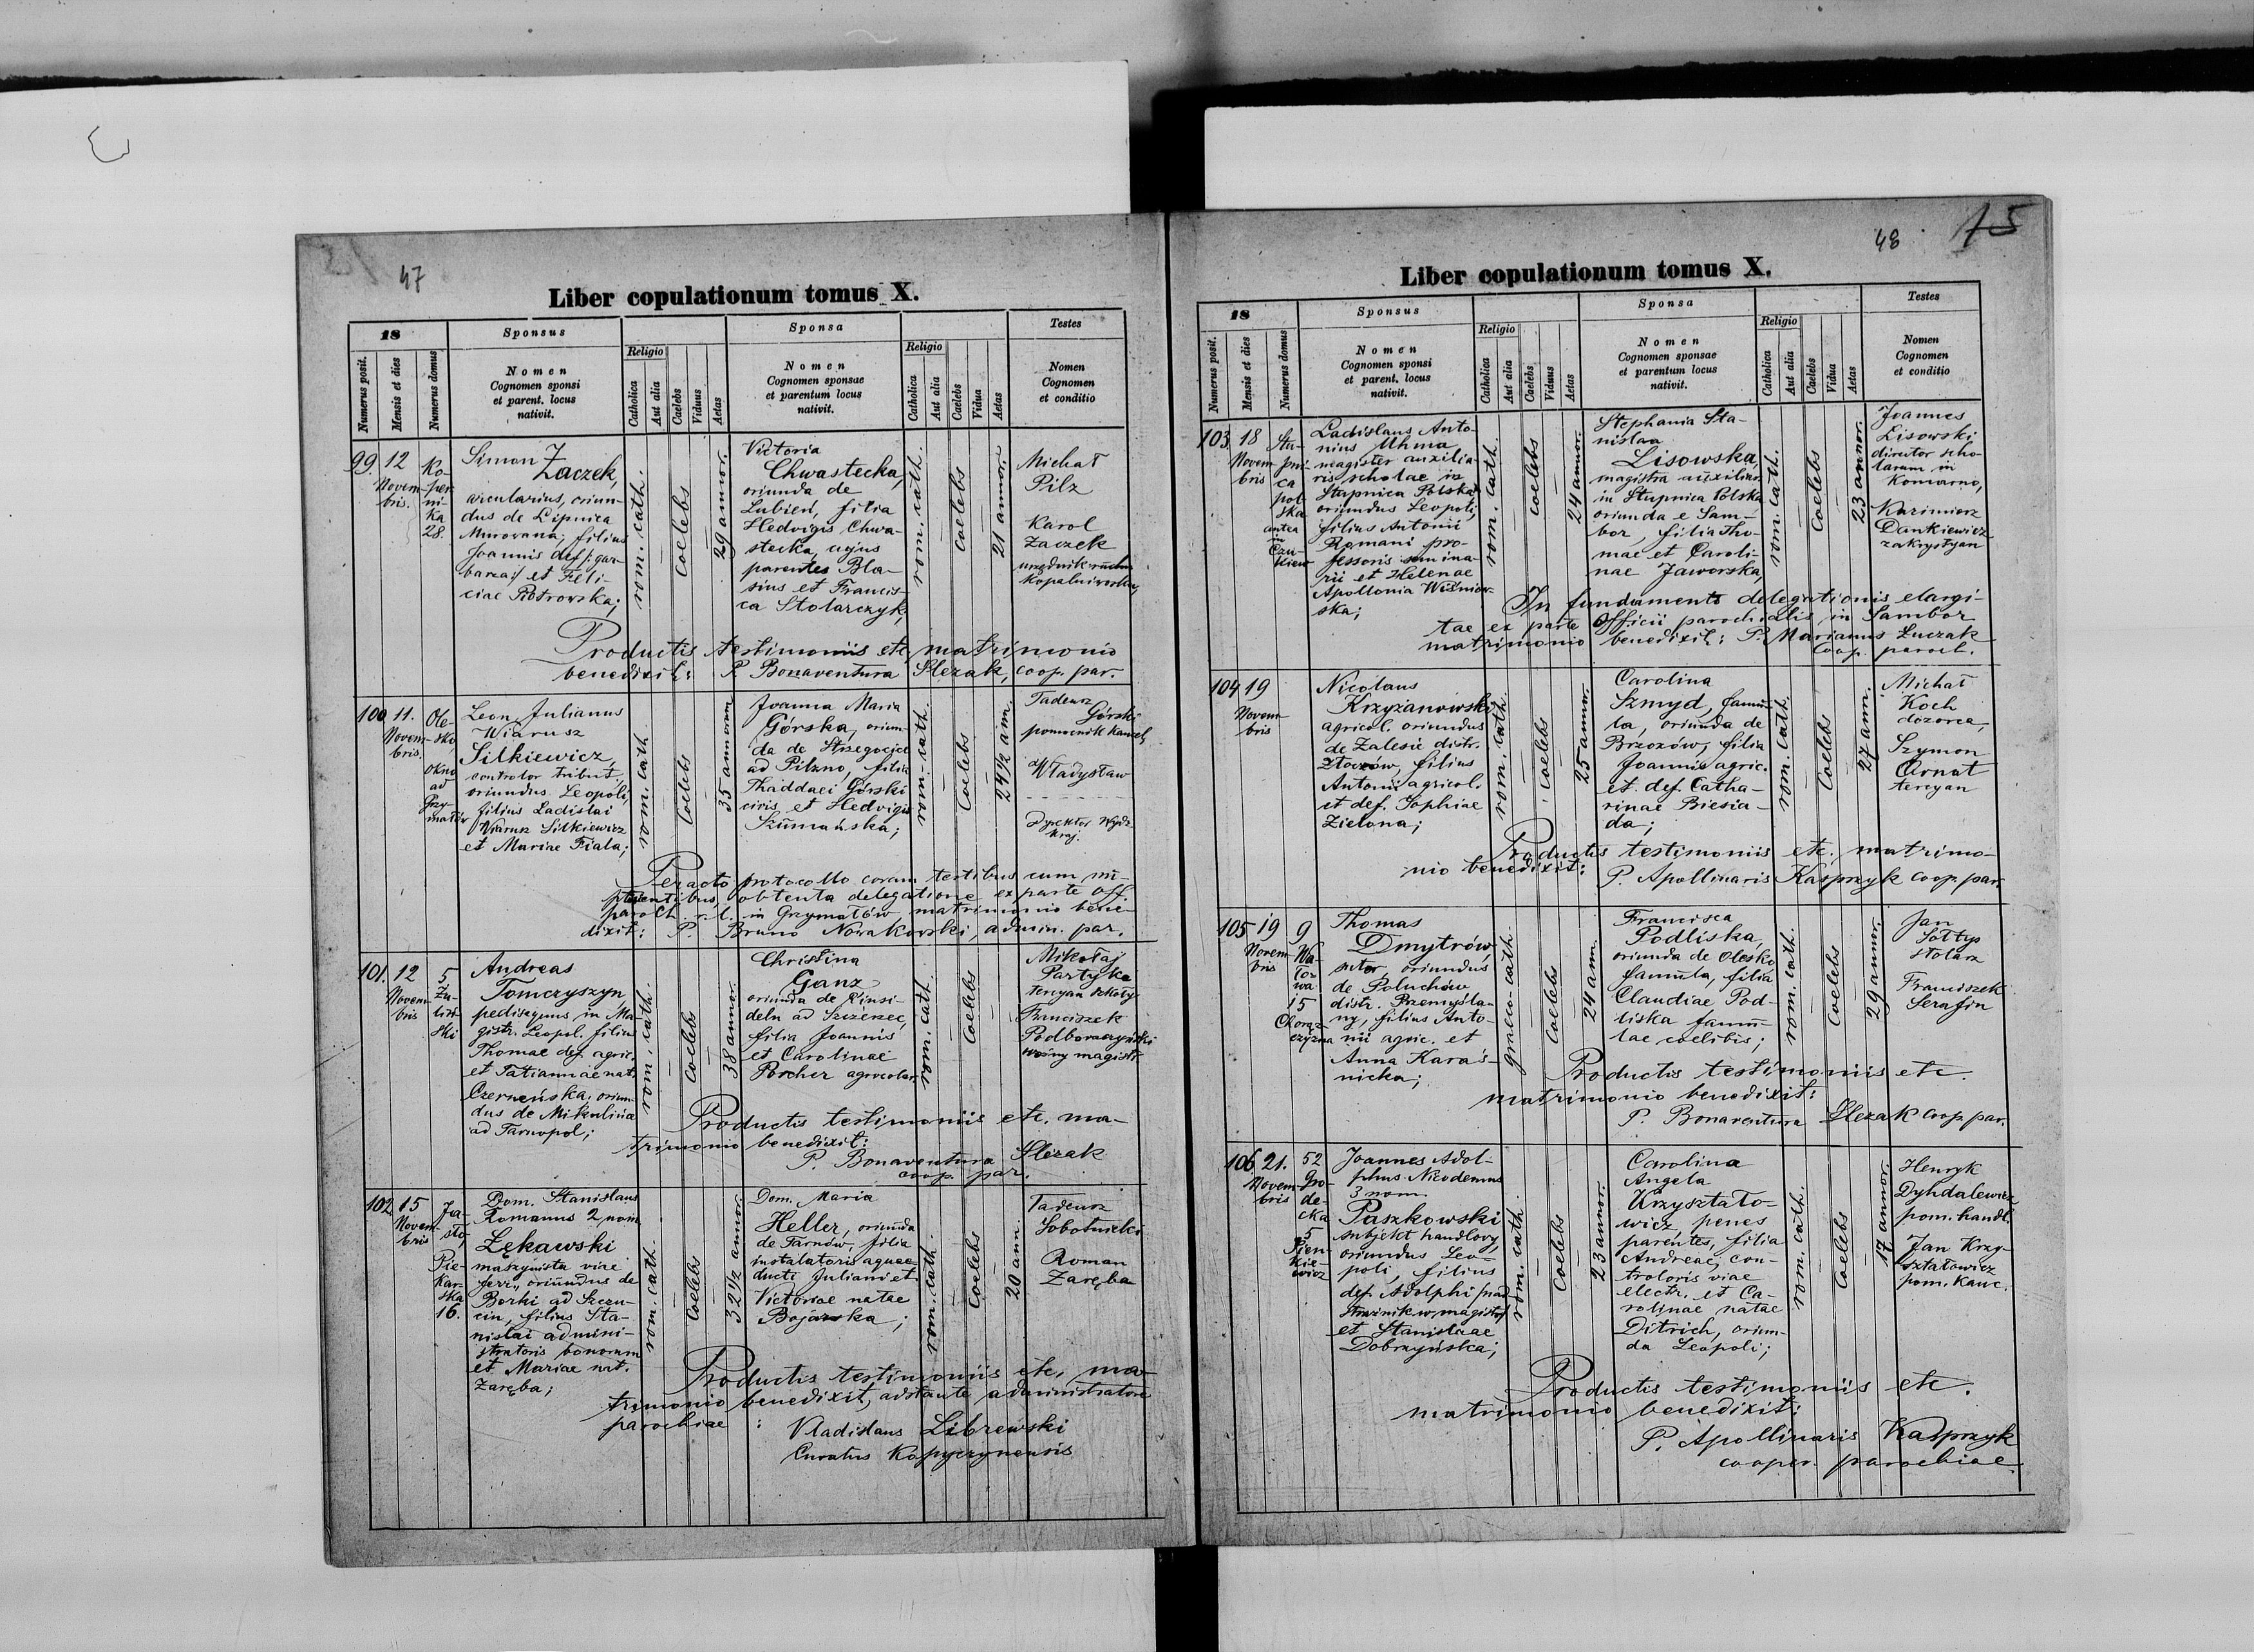 47
Liber copulationum tomus X.
18
Sponsus
Sponsa
Testes
Numerus posit.
Mensis et dies
Numerus domus
Nomen
Cognomen sponsi
et parent. locus
nativit.
Religio
Catholica
Aut alia
Caelebs
Viduus
Aetas
Nomen
Cognomen sponsae
et parentum locus
nativit.
Religio
Catholica
Aut alia
Caelebs
Vidua
Aetas
Nomen
Cognomen
et conditio
99.
12
Novem-
bris.
Ko-
per-
ni-
ka
28.
Simon
Zaczek,
arcularius, oriun-
dus de Lipnica
Murowana, filius
Joannis def. gar-
barza et Feli-
ciae Piotrowska;
rom. cath.
coelebs
29 annor.
Victoria
Chwastecka,
oriunda de
Lubień, filia
Hedvigis Chwa-
stecka, cujus
parentes Bla-
sius et Francis-
ca Stolarczyk,
rom. cath.
coelebs
21 annor.
Michał
Pilz
Karol
Zaczek
urzędnik
kopalni
Productis testimoniis etc. matrimonio
benedixit: P. Bonaventura Slezak, coop. par.
100
11.
Novem-
bris.
Ole-
sko
Okno
ad
Grzy-
małów
Leon Julianus
Wiarusz
Silkiewicz,
controlor tribut.,
oriundus Leopoli,
filius Ladislai
Wiarusz Silkiewicz
et Mariae Fiala;
rom. cath.
coelebs
35 annorum
Joanna Maria
Górska, oriun-
da de Strzegocice
ad Pilzno, filia
Thaddaei Górski
civis et Hedvigis
Szumańska;
rom. cath.
coelebs
24 1/2 ann.
Tadeusz
Górski
pomocnik kancel.
Władysław
Dyrektor Wydz.
kraj.
Peracto protocollo coram testibus cum
obtenta delegatione ex parte off.
paroch. r. l. in Grzymałów, matrimonio bene-
dixit: P. Bruno Nowakowski, admin. par.
101.
12
Novem-
bris
5
Zu-
liń-
ski
Andreas
Tomczyszyn,
pedisequus in Ma-
gistr. Leopol. filius
Thomae def. agric.
et Tatiannae nat.
Czerneńska, oriun-
dus de Mikulińce
ad Tarnopol;
rom. cath.
coelebs
38 annor.
Christina
Ganz
oriunda de Einsi-
deln ad Szczerzec,
filia Joannis
et Carolinae
Porcher agricolar.
rom. cath.
coelebs
Mikołaj
Partyka
tercyan szkoły
Franciszek
Podboraczyński
woźny magistr.
Productis testimoniis etc. ma-
trimonio benedixit:
P. Bonaventura Slezak
coop. par.
102
15
Novem-
bris
Ja-
sło
Pie-
kar-
ska
16.
Dom. Stanislaus
Romanus 2 nom.
Łękawski
maszynista viae
ferr., oriundus de
Borki ad Szczu-
cin, filius Sta-
nislai admini-
stratoris bonorum
et Mariae nat.
Zaręba;
rom. cath.
coelebs
32 1/2 annor.
Dom. Maria
Heller, oriunda
de Tarnów, filia
instalatoris aquae-
ducti Juliani et
Victoriae natae
Bojarska;
rom. cath.
coelebs
20 ann.
Tadeusz
Sobolnicki
Roman
Zaręba
Productis testimoniis etc, ma-
trimonio benedixit, adstante administratore
parochiae: Vladislaus Librewski
Curatus Kopyczynensis
48
15
Liber copulationum tomus X.
18
Sponsus
Sponsa
Testes
Numerus posit.
Mensis et dies
Numerus domus
Nomen
Cognomen sponsi
et parent. locus
nativit.
Religio
Catholica
Aut alia
Caelebs
Viduus
Aetas
Nomen
Cognomen sponsae
et parentum locus
nativit.
Religio
Catholica
Aut alia
Caelebs
Vidua
Aetas
Nomen
Cognomen
et conditio
103.
18
Novem-
bris
Stu-
pni-
ca
pol-
ska
antea
in
Czu-
kiew
Ladislaus Anto-
nius Uhma
magister auxilia-
ris scholae in
Stupnica Polska
oriundus Leopoli,
filius Antonii
Romani pro-
fessoris semina-
rii et Helenae
Apollonia Wiśniow-
ska;
rom. cath.
coelebs
24 annor.
Stephania Sta-
nislaa
Lisowska,
magistra auxiliar.
in Stupnica Polska
oriunda e Sam-
bor, filia Tho-
mae et Caroli-
nae Jaworska,
rom. cath.
coelebs
23 annor.
Joannes
Lisowski
director scho-
larum in
Komarno,
Kazimierz
Dankiewicz
zakrystyan
In fundamento delegationis elargi-
tae ex parte Officii parochialis in Sambor
matrimonio benedixit: P. Marianus Łuczak
coop. paroch.
104
19
Novem-
bris
Nicolaus
Krzyżanowski
agricol. oriundus
de Zalesie distr.
Złoczów, filius
Antonii agricol.
et def. Sophiae
Zielona;
rom. cath.
coelebs
25 annor.
Carolina
Szmyd, famu-
la, oriunda de
Brzozów, filia
Joannis agric.
et def. Catha-
rinae Biesia-
da;
rom. cath.
coelebs
27 ann.
Michał
Koch
dozorca,
Szymon
Ornat
tercyan
Productis testimoniis etc. matrimo-
nio benedixit:
P. Apollinaris Kasprzyk coop. par.
105
19
Novem-
bris
9
Wa-
to-
wa
15
Chorąż-
czyzna
Thomas
Dmytrów,
sutor, oriundus
de Poluchów
distr. Przemyśla-
ny, filius Anto-
nii agric. et
Anna Karaś-
nicka;
graeco-cath.
coelebs
24 ann.
Francisca
Podliska,
oriunda de Olesko
famula, filia
Claudiae Pod-
liska famu-
lae coelibis;
rom. cath.
coelebs
29 annor.
Jan
Sołtys
stolarz
Franciszek
Serafin
Productis testimoniis etc.
matrimonio benedixit:
P. Bonaventura Slezak coop. par.
106
21.
Novem-
bris
52
Gro-
de-
cka
5
Sien-
kie-
wicz
Joannes Adol-
phus Nicodemus
3 nom.
Paszkowski
subjekt handlowy,
oriundus Leo-
poli, filius
def. Adolphi nad-
strażnik w magistr.
et Stanislaae
Dobrzyńska;
rom. cath.
coelebs
23 annor.
Carolina
Angela
Krzyształo-
wicz, penes
parentes, filia
Andreae, con-
troloris viae
electr. et Ca-
rolinae natae
Ditrich, oriun-
da Leopoli;
rom. cath.
coelebs
17 annor.
Henryk
Dyhdalewicz
pom. handl.
Jan Krzy-
ształowicz
pom. kanc.
Productis testimoniis etc.
matrimonio benedixit:
P. Apollinaris Kasprzyk
cooper. parochiae